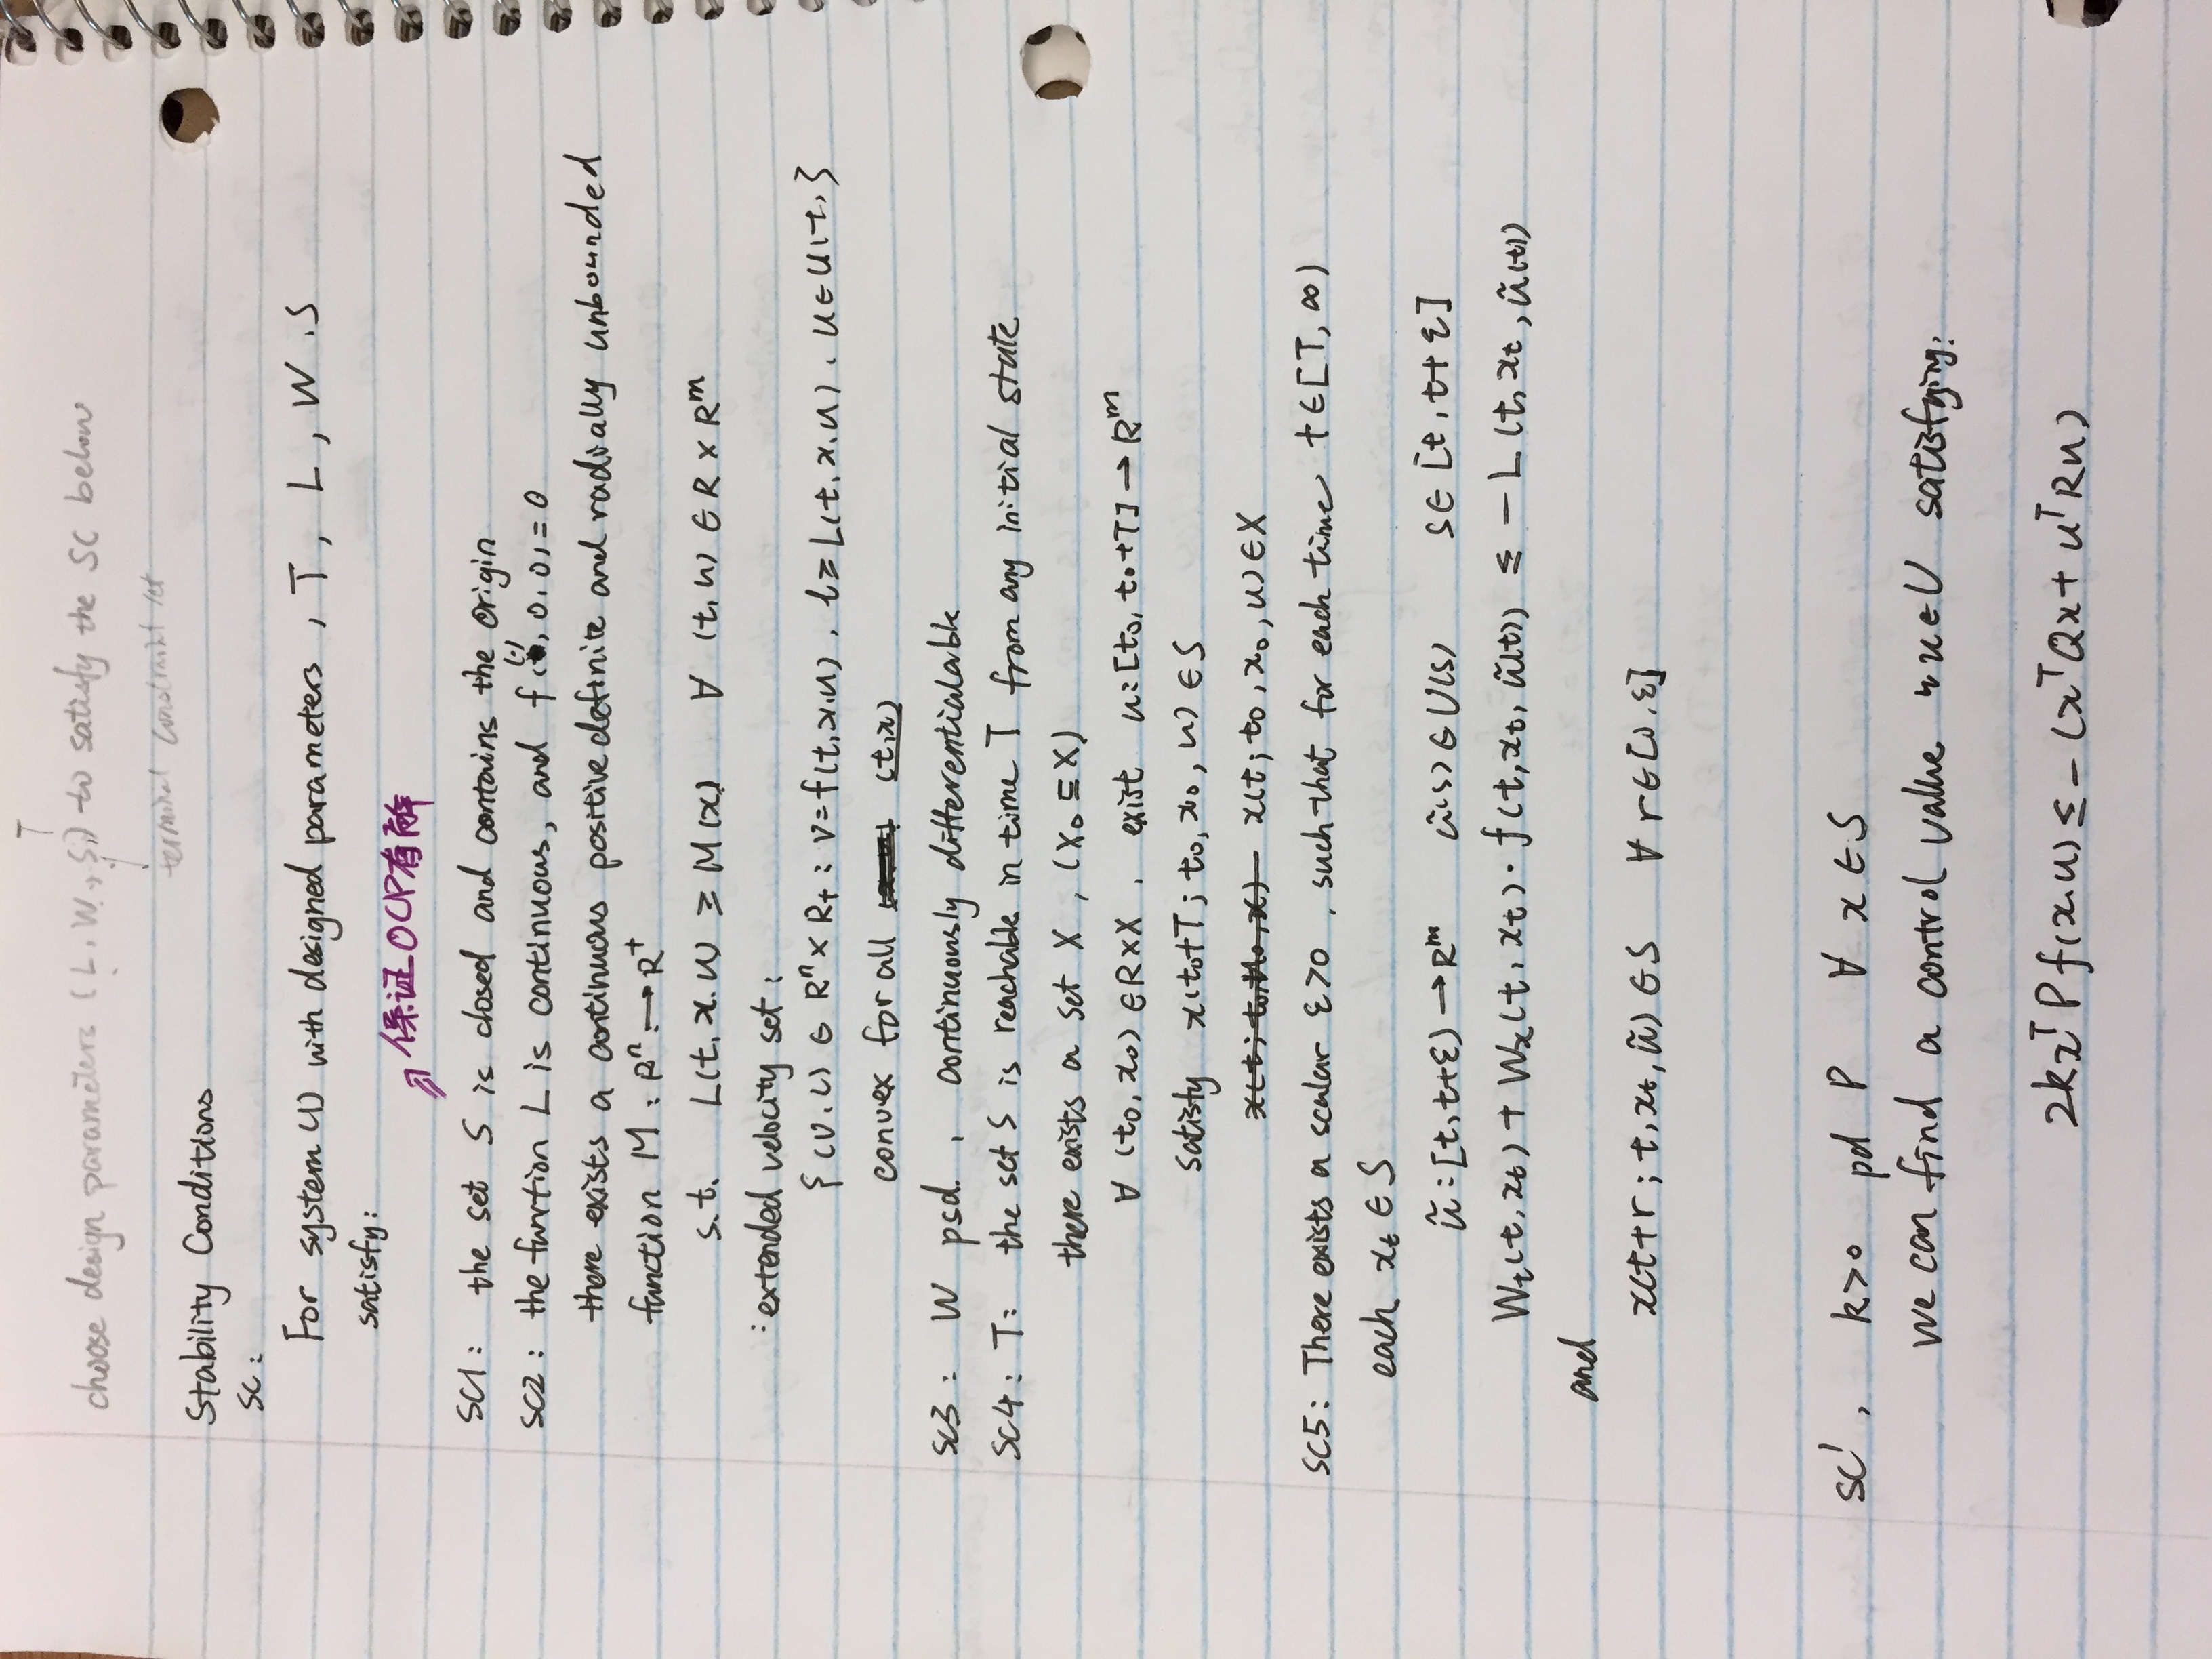 T
choose design parameters (L, W, S,) to satisfy the SC below
terminal constraint set
Stability Conditions
SC:
For system (1) with designed parameters, T, L, W, S
satisfy:
保证OCP有解
SC1: the set S is closed and contains the origin
SC2: the function L is continuous, and f((·), 0, 0) = 0
there exists a continuous positive definite and radially unbounded
function M: Rⁿ → R⁺
s.t. L(t, x, u) ≥ M(x) ∀ (t, u) ∈ R × Rᵐ
: extended velocity set:
{ (v, l) ∈ Rⁿ × R₊ : v = f(t, x, u), l ≥ L(t, x, u), u ∈ U(t, }
convex for all (t, x)
SC3: W psd, continuously differentialable
SC4: T: the set S is reachable in time T from any initial state
there exists a set X, (X₀ ⊆ X)
∀ (t₀, x₀) ∈ R×X, exist u: [t₀, t₀+T] → Rᵐ
satisfy x(t₀+T; t₀, x₀, u) ∈ S
x(t; t₀, x₀, u) ∈ X
SC5: There exists a scalar ε>0, such that for each time t ∈ [T, ∞)
each xₜ ∈ S
ũ: [t, t+ε) → Rᵐ ũ(s) ∈ U(s) s ∈ [t, t+ε]
Wₜ(t, xₜ) + Wₓ(t, xₜ) · f(t, xₜ, ũ(t)) ≤ - L(t, xₜ, ũ(t))
and
x(t+r; t, xₜ, ũ) ∈ S ∀ r ∈ [0, ε]
SC', k>0 pd P ∀ x ∈ S
we can find a control value u ∈ U satisfying:
2kxᵀPf(x, u) ≤ - (xᵀQx + uᵀRu)